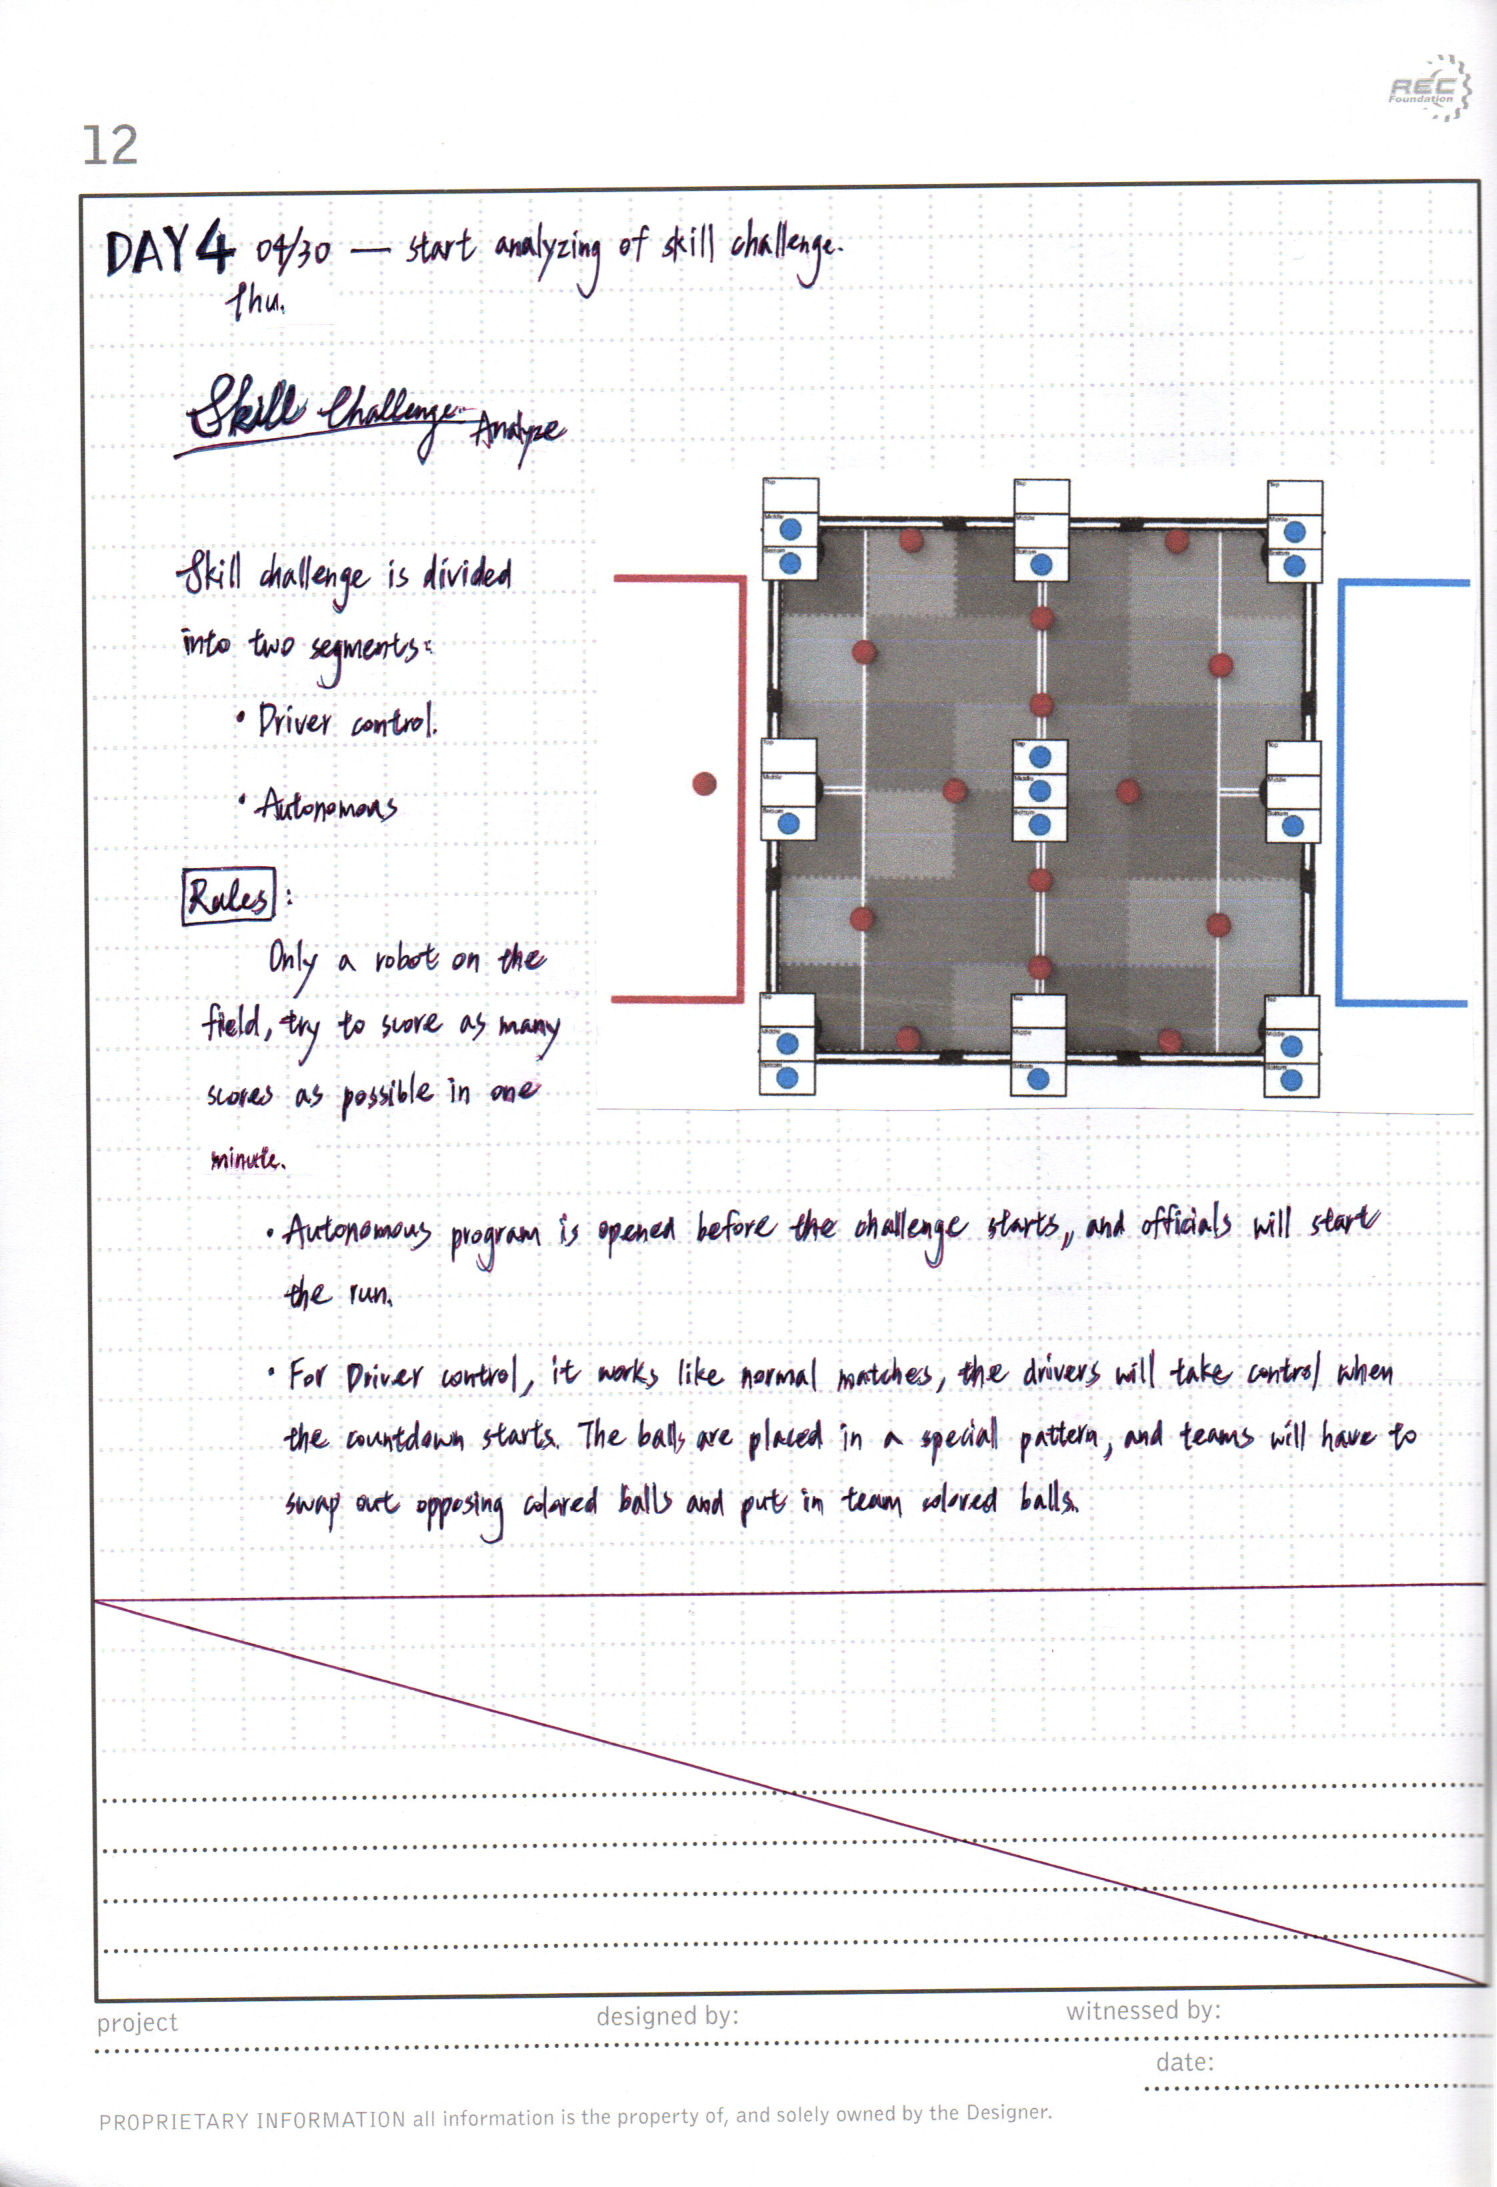 REC
Foundation
12
DAY 4 04/30 — start analyzing of skill challenge.
Thu.
Skill Challenge - Analyze
Skill challenge is divided
into two segments:
• Driver control.
• Autonomous
Rules :
Only a robot on the
field, try to score as many
scores as possible in one
minute.
Top Top Top
Middle Middle Middle
Bottom Bottom Bottom
Top Top Top
Middle Middle Middle
Bottom Bottom Bottom
Top Top Top
Middle Middle Middle
Bottom Bottom Bottom
• Autonomous program is opened before the challenge starts, and officials will start
the run.
• For Driver control, it works like normal matches, the drivers will take control when
the countdown starts. The balls are placed in a special pattern, and teams will have to
swap out opposing colored balls and put in team colored balls.
project designed by: witnessed by:
date:
PROPRIETARY INFORMATION all information is the property of, and solely owned by the Designer.